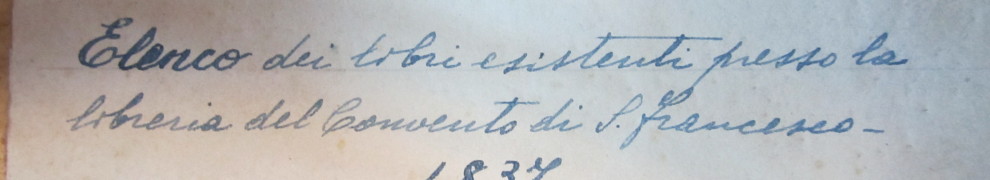 Elenco dei libri esistenti presso la
libreria del Convento di S. Francesco -
1837